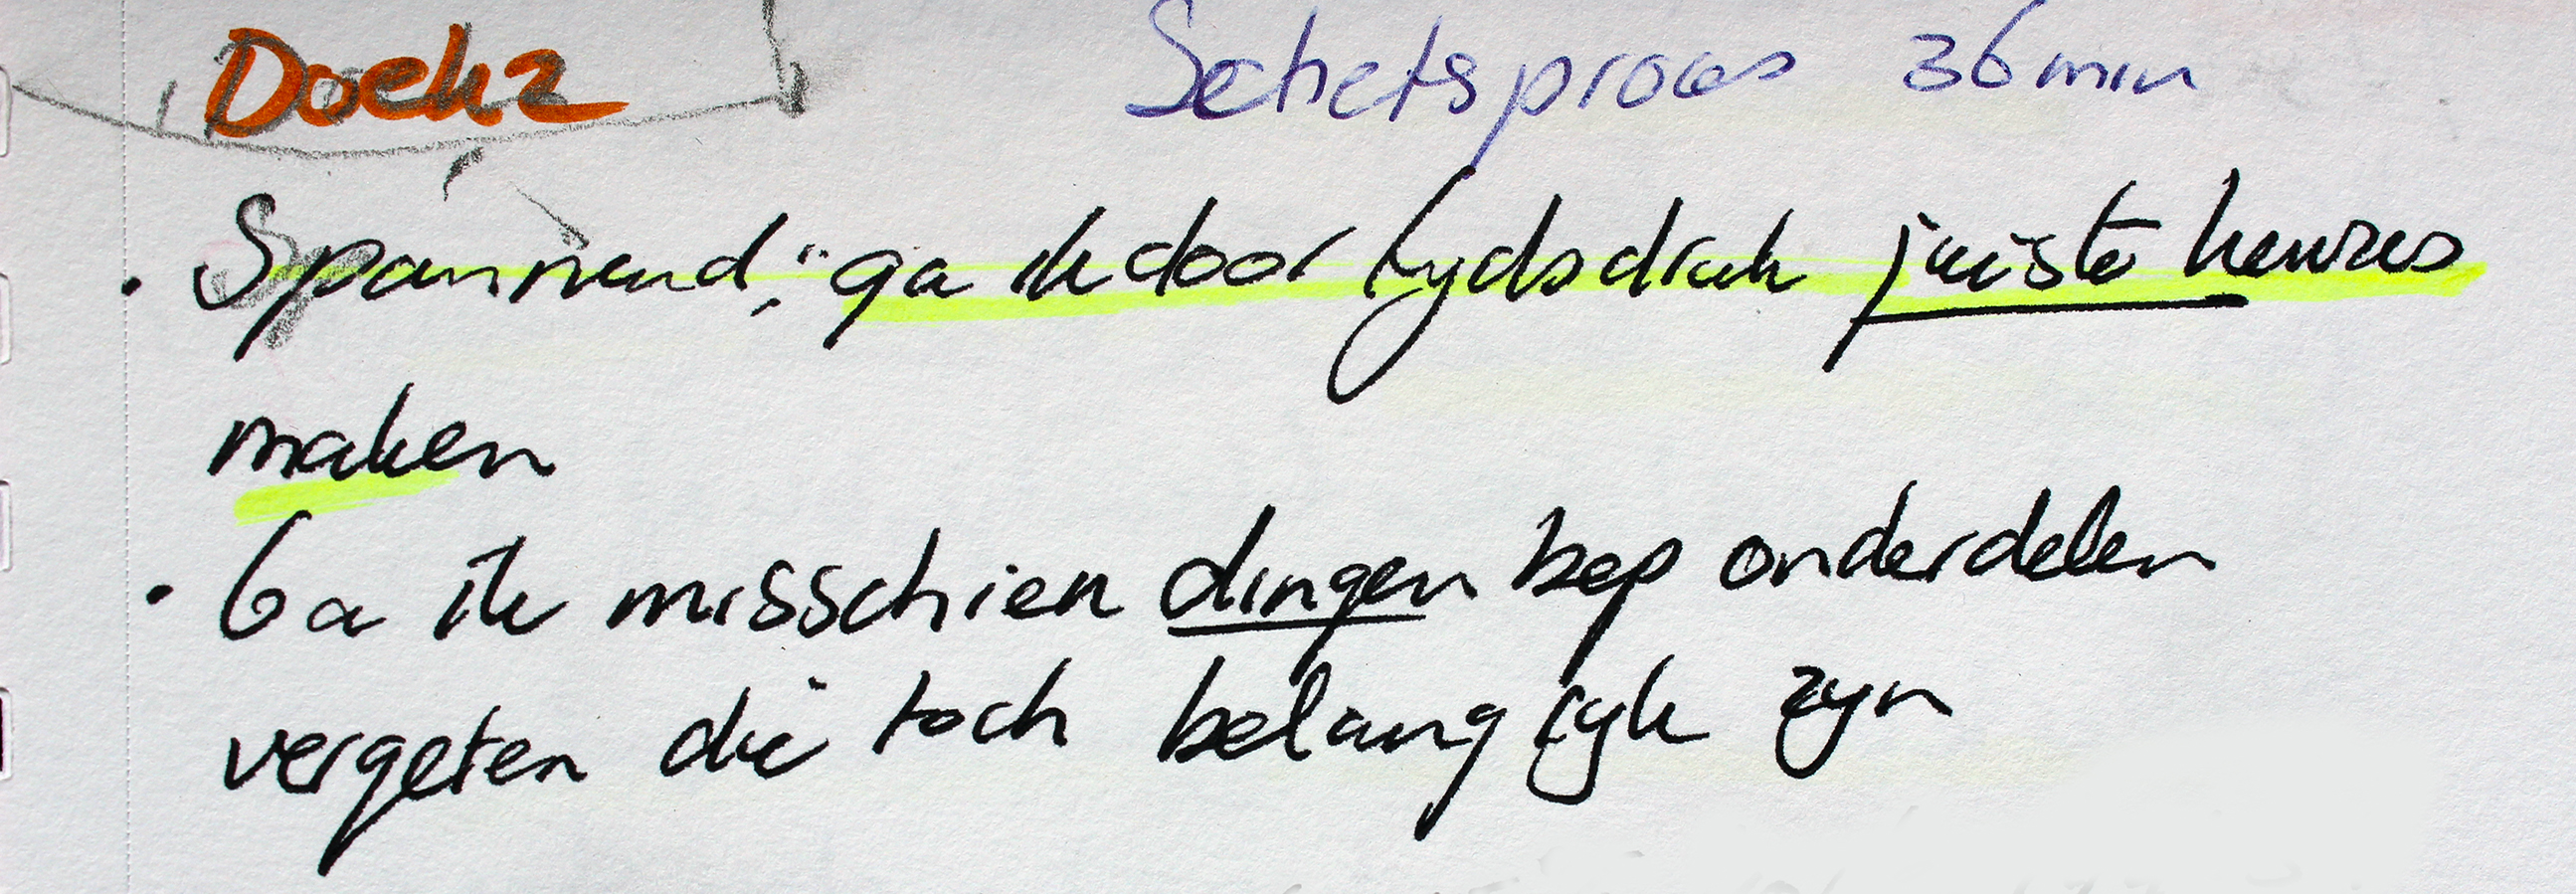 Doek 2 Schetsproces 36 min
· Spannend; "ga ik door tijdsdruk juiste keuzes
maken
· Ga ik misschien dingen bep onderdelen
vergeten die toch belangrijk zijn